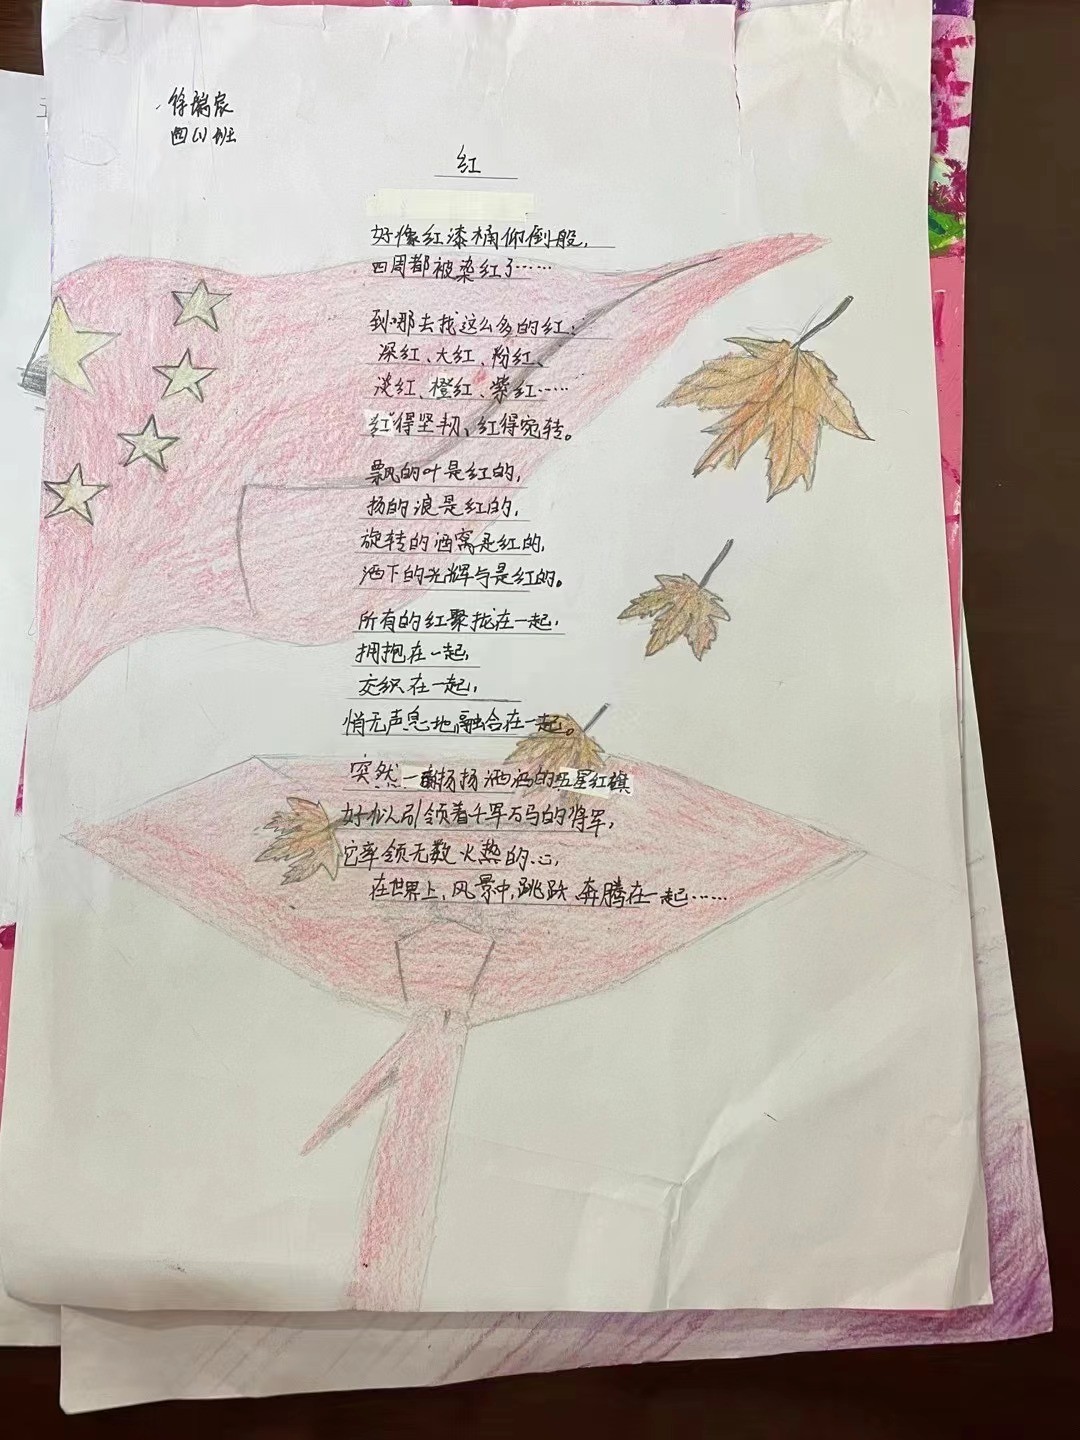 徐瑞宸
四(1)班
红
好像红漆桶仰倒般，
四周都被染红了……
到哪去找这么多的红：
深红、大红、粉红、
淡红、橙红、紫红……
红得坚韧、红得宛转。
飘的叶是红的，
扬的浪是红的，
旋转的酒窝是红的，
洒下的光辉与是红的。
所有的红聚拢在一起，
拥抱在一起，
交织在一起，
悄无声息地融合在一起。
突然一翻扬扬洒洒的五星红旗
好似引领着千军万马的将军，
它率领无数火热的心，
在世界上，风景中，跳跃、奔腾在一起……